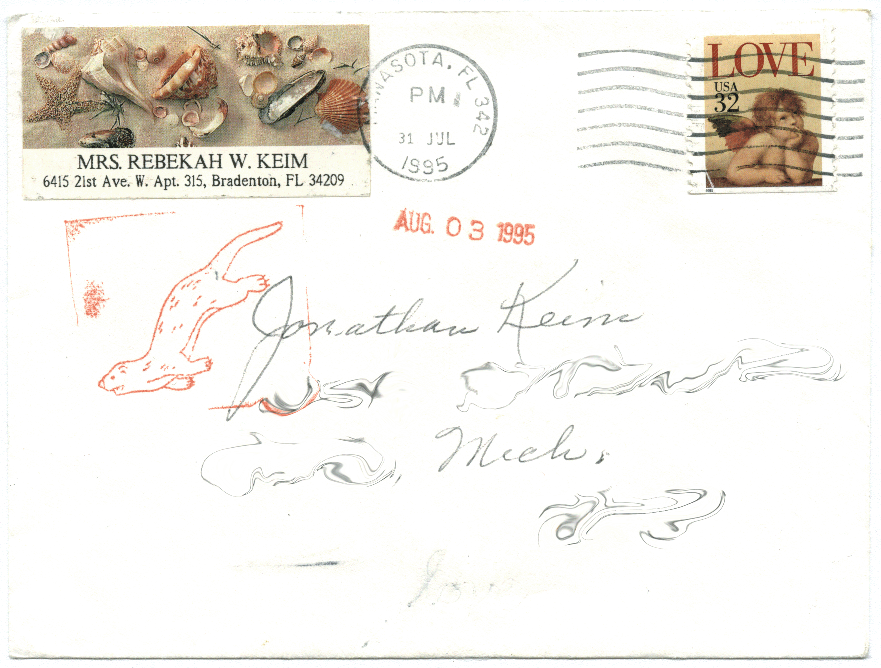 MRS. REBEKAH W. KEIM
6415 21st Ave. W. Apt. 315, Bradenton, FL 34209
MANASOTA, FL 342
PM
31 JUL
1995
LOVE
USA
32
AUG. 03 1995
Jonathan Keim
Mich.